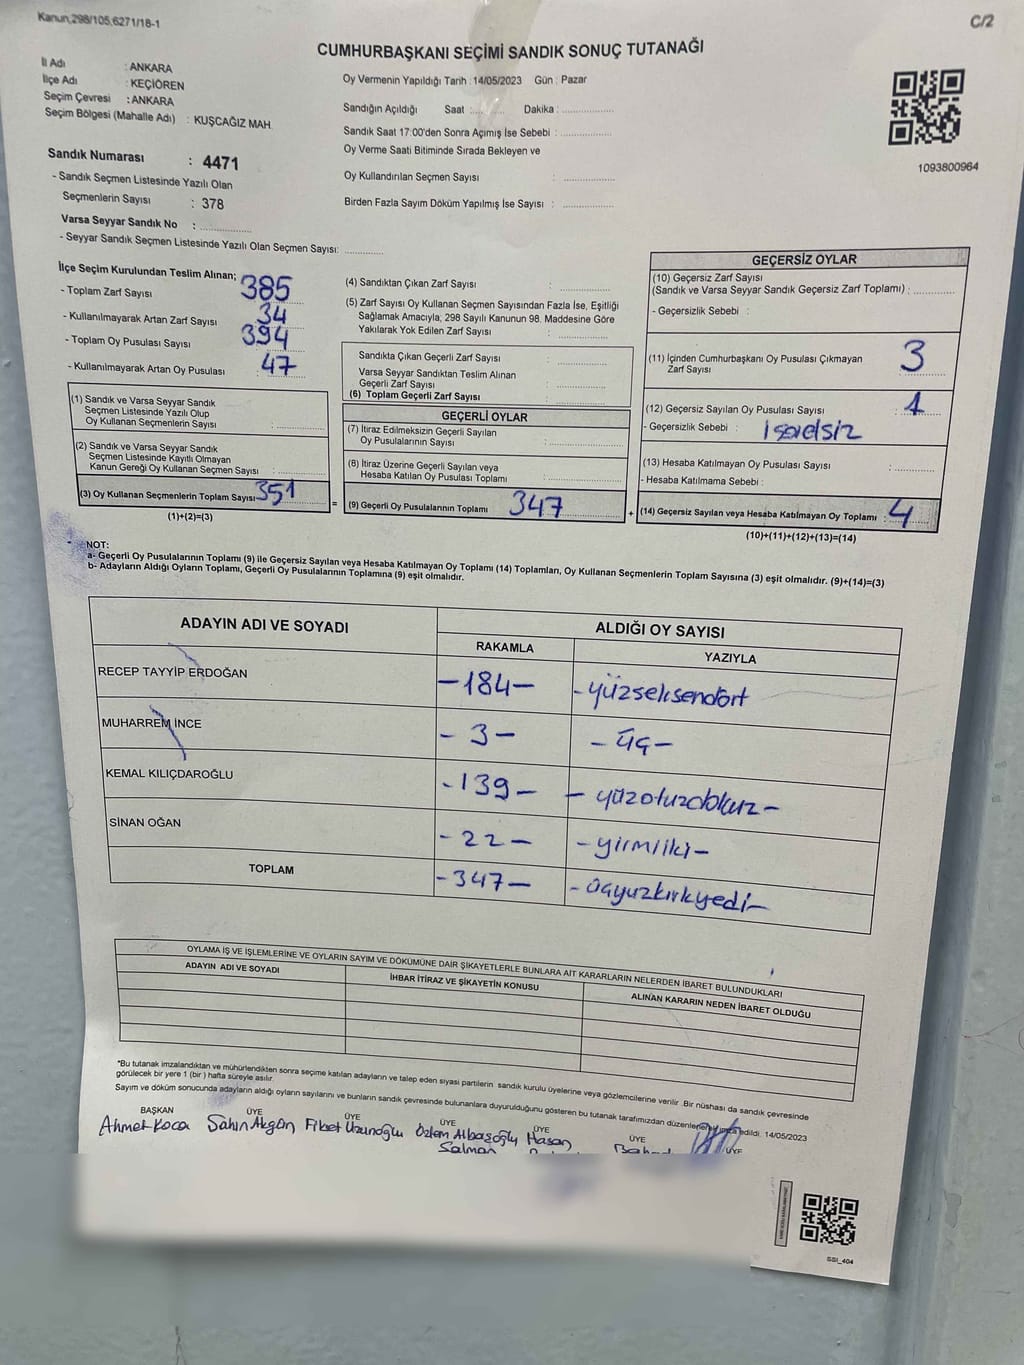 Kanun,298/105,6271/18-1
C/2
CUMHURBAŞKANI SEÇİMİ SANDIK SONUÇ TUTANAĞI
İl Adı : ANKARA
İlçe Adı : KEÇİÖREN
Seçim Çevresi : ANKARA
Seçim Bölgesi (Mahalle Adı) : KUŞCAĞIZ MAH.
Sandık Numarası : 4471
- Sandık Seçmen Listesinde Yazılı Olan
Seçmenlerin Sayısı : 378
Varsa Seyyar Sandık No :
- Seyyar Sandık Seçmen Listesinde Yazılı Olan Seçmen Sayısı:
Oy Vermenin Yapıldığı Tarih : 14/05/2023 Gün : Pazar
Sandığın Açıldığı Saat : Dakika :
Sandık Saat 17:00'den Sonra Açımış İse Sebebi :
Oy Verme Saati Bitiminde Sırada Bekleyen ve
Oy Kullandırılan Seçmen Sayısı :
Birden Fazla Sayım Döküm Yapılmış İse Sayısı :
1093800964
İlçe Seçim Kurulundan Teslim Alınan;
- Toplam Zarf Sayısı : 385
- Kullanılmayarak Artan Zarf Sayısı : 34
- Toplam Oy Pusulası Sayısı : 394
- Kullanılmayarak Artan Oy Pusulası : 47
(1) Sandık ve Varsa Seyyar Sandık
Seçmen Listesinde Yazılı Olup
Oy Kullanan Seçmenlerin Sayısı :
(2) Sandık ve Varsa Seyyar Sandık
Seçmen Listesinde Kayıtlı Olmayan
Kanun Gereği Oy Kullanan Seçmen Sayısı :
(3) Oy Kullanan Seçmenlerin Toplam Sayısı: 351
(1)+(2)=(3)
(4) Sandıktan Çıkan Zarf Sayısı :
(5) Zarf Sayısı Oy Kullanan Seçmen Sayısından Fazla İse, Eşitliği
Sağlamak Amacıyla, 298 Sayılı Kanunun 98. Maddesine Göre
Yakılarak Yok Edilen Zarf Sayısı :
Sandıkta Çıkan Geçerli Zarf Sayısı :
Varsa Seyyar Sandıktan Teslim Alınan
Geçerli Zarf Sayısı :
(6) Toplam Geçerli Zarf Sayısı :
GEÇERLİ OYLAR
(7) İtiraz Edilmeksizin Geçerli Sayılan
Oy Pusulalarının Sayısı :
(8) İtiraz Üzerine Geçerli Sayılan veya
Hesaba Katılan Oy Pusulası Toplamı :
= (9) Geçerli Oy Pusulalarının Toplamı 347 +
GEÇERSİZ OYLAR
(10) Geçersiz Zarf Sayısı
(Sandık ve Varsa Seyyar Sandık Geçersiz Zarf Toplamı) :
- Geçersizlik Sebebi :
(11) İçinden Cumhurbaşkanı Oy Pusulası Çıkmayan
Zarf Sayısı : 3
(12) Geçersiz Sayılan Oy Pusulası Sayısı : 1
- Geçersizlik Sebebi : işaretsiz
(13) Hesaba Katılmayan Oy Pusulası Sayısı :
- Hesaba Katılmama Sebebi :
(14) Geçersiz Sayılan veya Hesaba Katılmayan Oy Toplamı : 4
(10)+(11)+(12)+(13)=(14)
NOT:
a- Geçerli Oy Pusulalarının Toplamı (9) ile Geçersiz Sayılan veya Hesaba Katılmayan Oy Toplamı (14) Toplamları, Oy Kullanan Seçmenlerin Toplam Sayısına (3) eşit olmalıdır. (9)+(14)=(3)
b- Adayların Aldığı Oyların Toplamı, Geçerli Oy Pusulalarının Toplamına (9) eşit olmalıdır.
ADAYIN ADI VE SOYADI ALDIĞI OY SAYISI
RAKAMLA YAZIYLA
RECEP TAYYİP ERDOĞAN -184- -yüzseksendört
MUHARREM İNCE - 3 - - üç -
KEMAL KILIÇDAROĞLU -139- - yüzotuzdokuz -
SİNAN OĞAN - 22 - - yirmiiki -
TOPLAM -347- - üçyüzkırkyedi -
OYLAMA İŞ VE İŞLEMLERİNE VE OYLARIN SAYIM VE DÖKÜMÜNE DAİR ŞİKAYETLERLE BUNLARA AİT KARARLARIN NELERDEN İBARET BULUNDUKLARI
ADAYIN ADI VE SOYADI İHBAR İTİRAZ VE ŞİKAYETİN KONUSU ALINAN KARARIN NEDEN İBARET OLDUĞU
*Bu tutanak imzalandıktan ve mühürlendikten sonra seçime katılan adayların ve talep eden siyasi partilerin sandık kurulu üyelerine veya gözlemcilerine verilir. Bir nüshası da sandık çevresinde
görülecek bir yere 1 (bir) hafta süreyle asılır.
Sayım ve döküm sonucunda adayların aldığı oyların sayılarını ve bunların sandık çevresinde bulunanlara duyurulduğunu gösteren bu tutanak tarafımızdan düzenlenerek imza edildi. 14/05/2023
BAŞKAN ÜYE ÜYE ÜYE ÜYE ÜYE ÜYE
Ahmet Koca Şahin Akgün Fikret Uzunoğlu Özlem Albaşoğlu Hasan
Salman
SSI_404